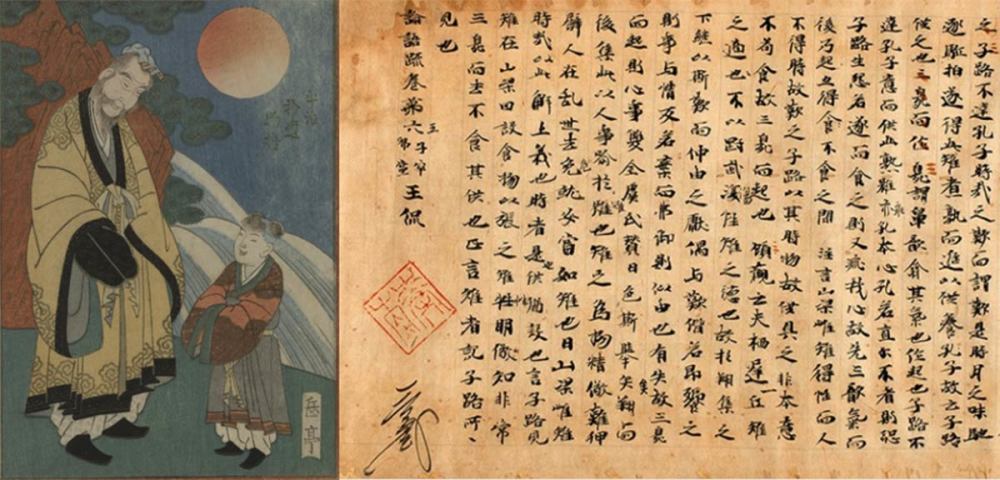 之子路不達孔子時哉之歎而謂歎是時月之味馳
逐駈拍遂得雌雉煮熟而進以供養孔子故云子路
供之也三臭而作臭謂鼻歆翕其氣也作起也子路不
達孔子意而供此熟雉乖孔本心孔若直尓不者則恐
子路生怨若遂而食之則又乖我心故先三歎氣而
後乃起亦得食不食之間 注言山梁雌雉得性而人
不得時故歎之子路以其時物故供具之非本意
不苟食故三臭而起也 顧歡云夫栖遲丘雉
之適也不以剛武傷性雌之德也故於翔集之
下繼以斯歎而仲由之獻偶与歎諧若即饗之
則事与情反若棄而弗御則似由也有失故三臭
而起則心事雙全虞氏贊曰色斯舉矣翔而
後集此以人事喻於雉也雉之為物精儆難狎
譬人在乱世去危就安當如雉也曰山梁雌雉
時哉以此解上義也時者是供猶設也言子路見
雉在山梁因設食物以張之雉性明儆知非常
三臭而去不食其供也正言雉者記子路所
見也
論語疏卷第六
王侃
岳亭